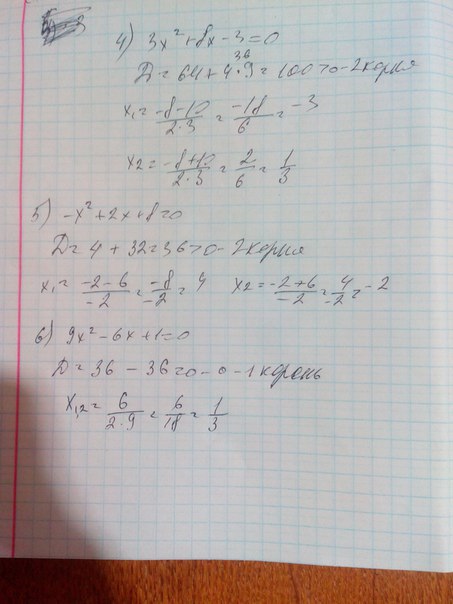 4) 3x² + 8x - 3 = 0
36
D = 64 + 4·9 = 100 > 0 - 2 корня
x₁ = (-8-10)/(2·3) = -18/6 = -3
x₂ = (-8+10)/(2·3) = 2/6 = 1/3
5) -x² + 2x + 8 = 0
D = 4 + 32 = 36 > 0 - 2 корня
x₁ = (-2-6)/(-2) = -8/-2 = 4 x₂ = (-2+6)/(-2) = 4/-2 = -2
6) 9x² - 6x + 1 = 0
D = 36 - 36 = 0 - 0 - 1 корень
x₁,₂ = 6/(2·9) = 6/18 = 1/3